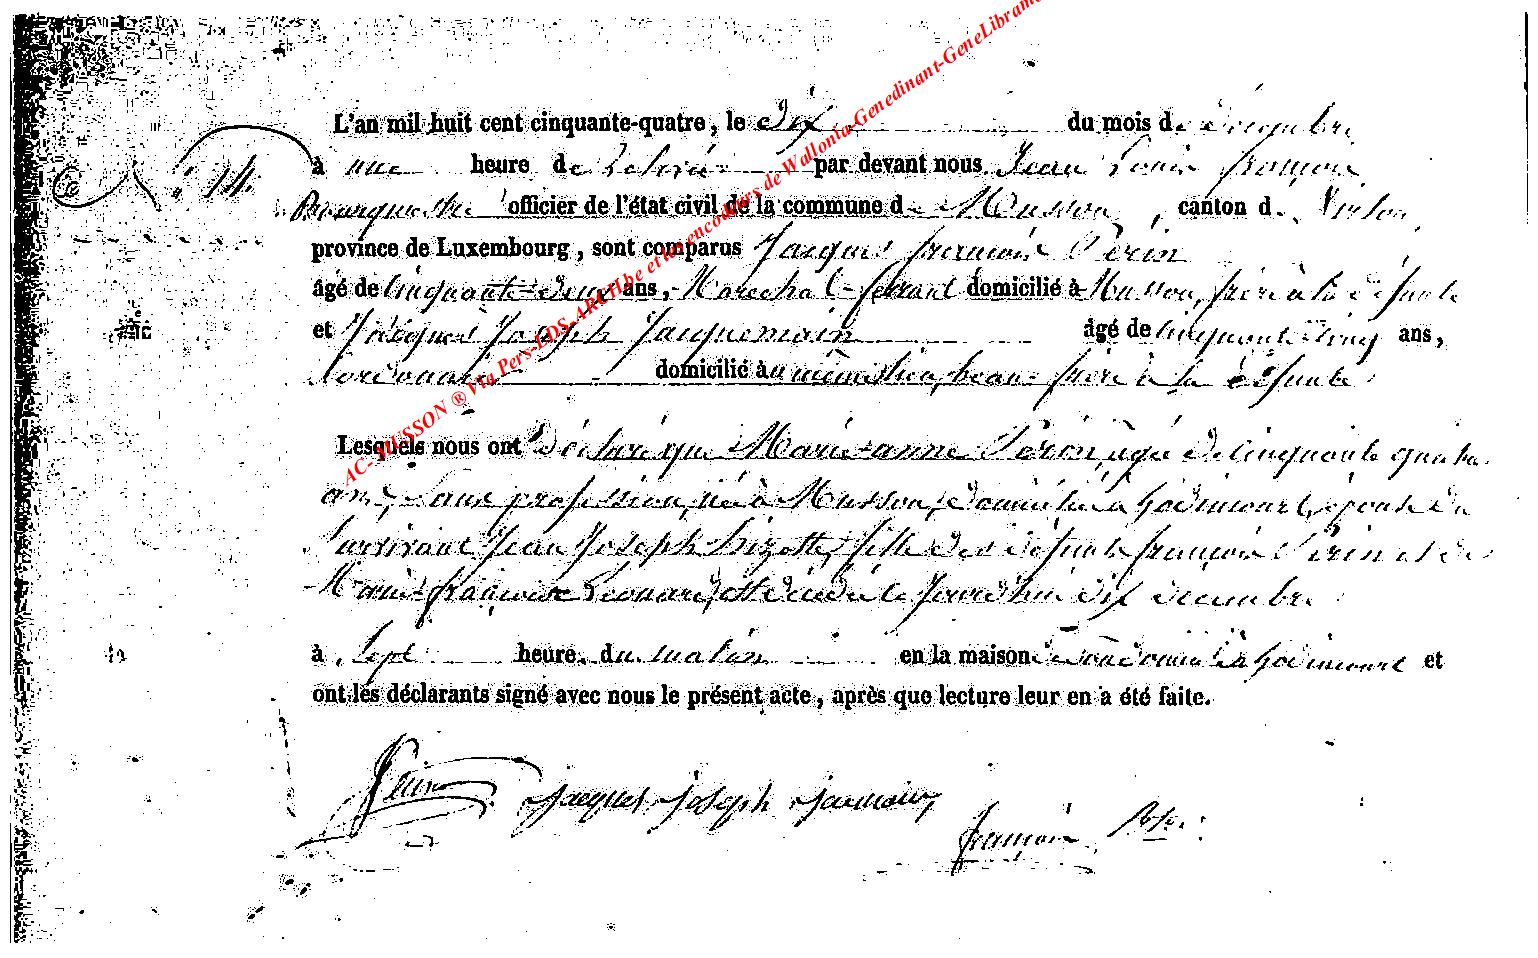 AC-MUSSON ® Via Pers-EDS-ARCH.be et les encodeurs de Wallonia-Genedinant-GeneLibrame
L'an mil huit cent cinquante-quatre, le dix du mois de décembre
à une heure de relevée par devant nous Jean Louis françois
N° 14.
Bourgmestre officier de l'état civil de la commune de Musson, canton de Virton
province de Luxembourg, sont comparus Jacques françois Perin
âgé de cinquante-deux ans, Marechal-ferrant domicilié à Musson, frère à la défunte
et Jacques Joseph Jacquemain âgé de cinquante cinq ans,
Cordonnier domicilié au même lieu, beau-frère à la défunte
Lesquels nous ont déclaré que Marie-anne Perin, agée de cinquante quatre
ans, sans profession, née à Musson, domiciliée à Godincourt, épouse du
survivant Jean Joseph Bizotte, fille des défunts françois Perin et de
Marie-françoise Leonard, est décédée le jourd'hui dix decembre
à sept heure. du matin en la maison de son domicile à Godincourt et
ont les déclarants signé avec nous le présent acte, après que lecture leur en a été faite.
Perin Jacques Joseph Jacmain
françois